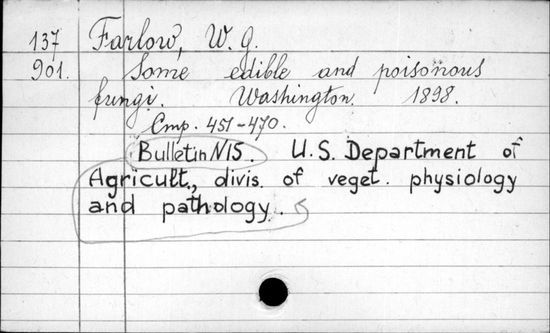 137 Farlow, W. G.
901. Some edible and poisonous
fungi. Washington. 1898.
Стр. 451-470.
Bulletin N15. U.S. Department of
Agricult., divis. of veget. physiology
and pathology.